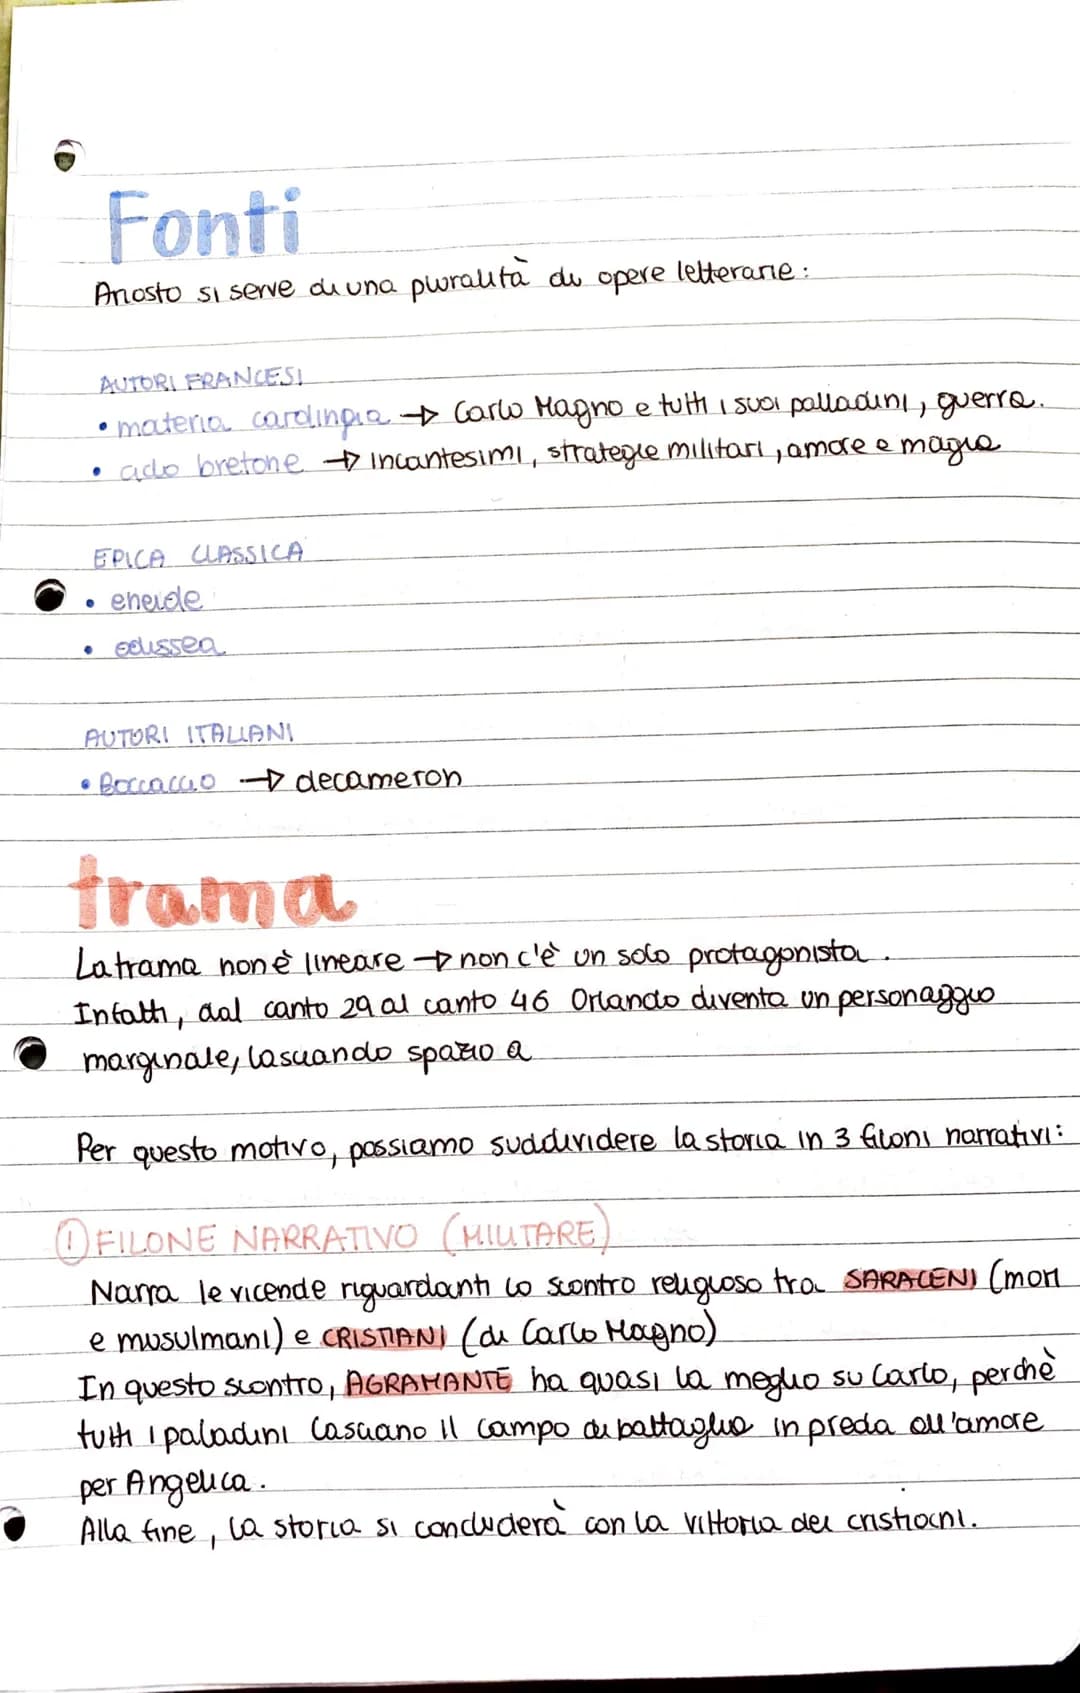 Fonti
Ariosto si serve di una pluralità di opere letterarie:
AUTORI FRANCESI
• materia carolingia → Carlo Magno e tutti i suoi palladini, guerra.
• ciclo bretone → incantesimi, strategie militari, amore e magia
EPICA CLASSICA
• eneide
• odissea
AUTORI ITALIANI
• Boccaccio → decameron
trama
La trama non è lineare → non c'è un solo protagonista.
Infatti, dal canto 29 al canto 46 Orlando diventa un personaggio
marginale, lasciando spazio a
Per questo motivo, possiamo suddividere la storia in 3 filoni narrativi:
① FILONE NARRATIVO (MILITARE)
Narra le vicende riguardanti lo scontro religioso tra SARACENI (mori
e musulmani) e CRISTIANI (di Carlo Magno)
In questo scontro, AGRAMANTE ha quasi la meglio su Carlo, perchè
tutti i paladini lasciano il campo di battaglia in preda all'amore
per Angelica.
Alla fine, la storia si concluderà con la vittoria dei cristiani.